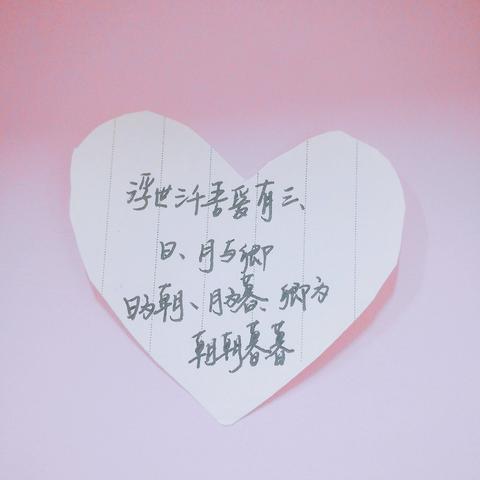 浮世三千吾爱有三、
日、月与卿
日为朝、月为暮、卿为
朝朝暮暮